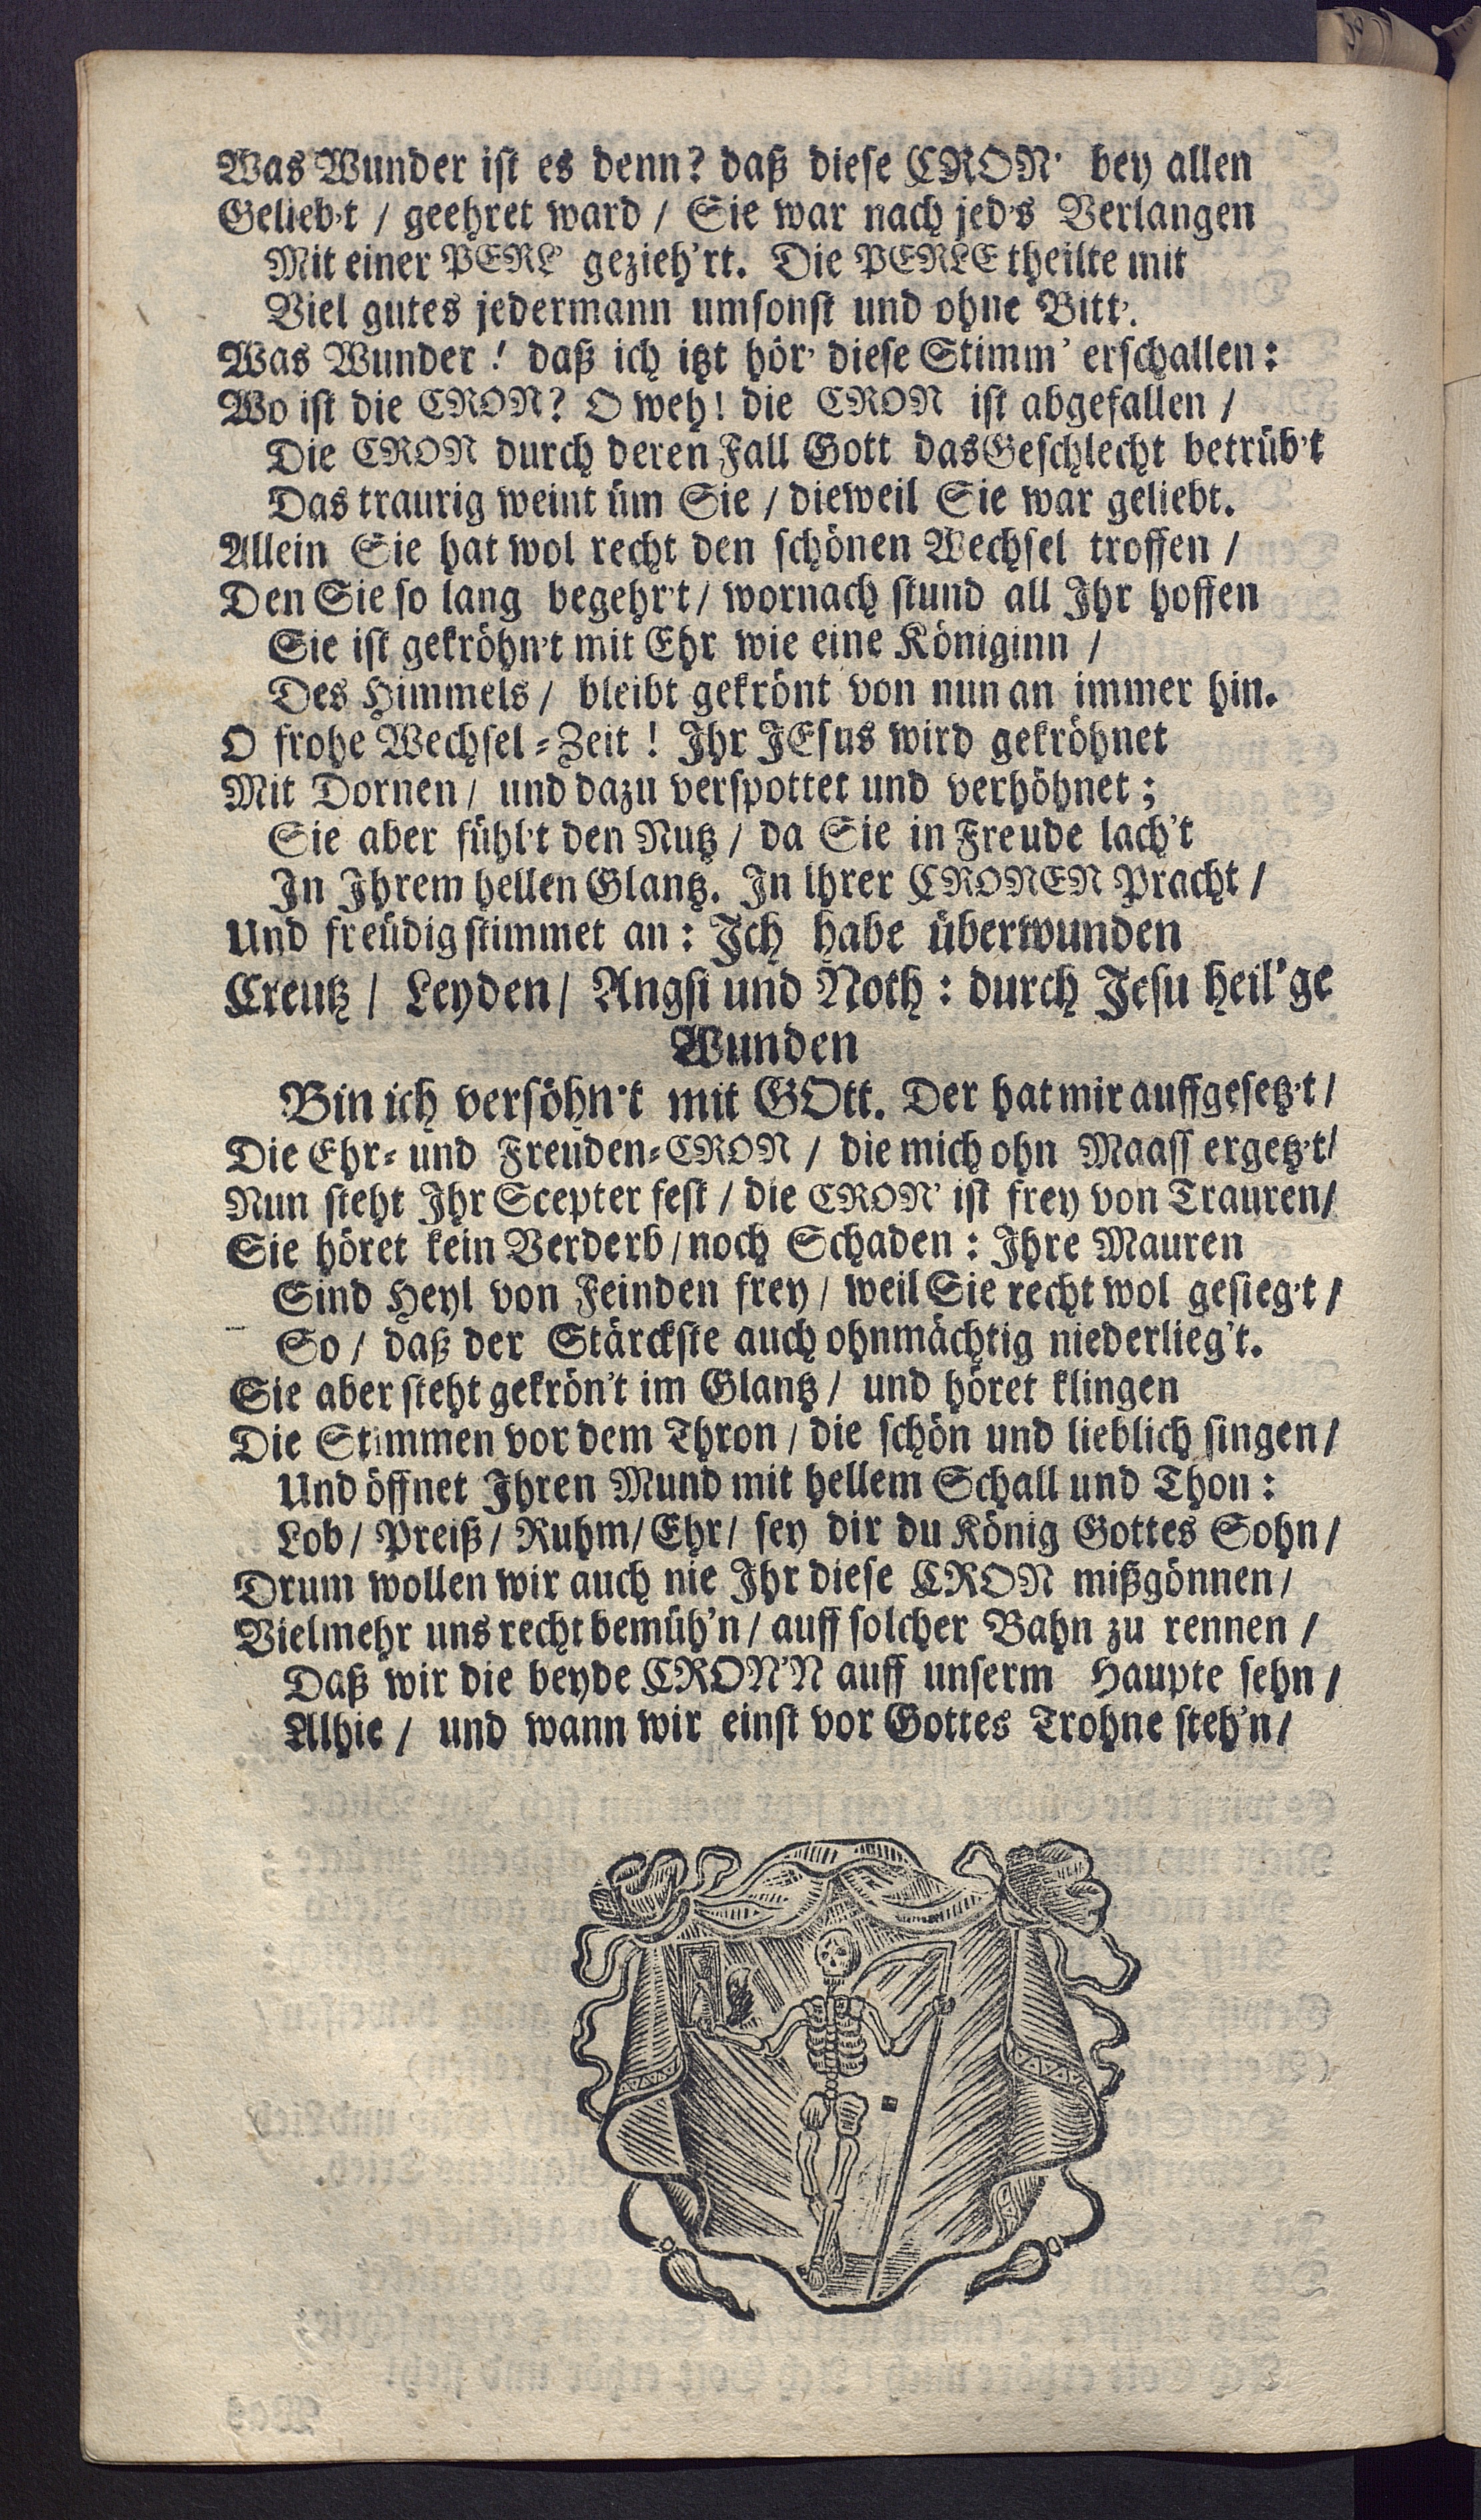 Was Wunder ist es denn? daß diese CRON' bey allen
Gelieb't / geehret ward / Sie war nach jed's Verlangen
Mit einer PERL' gezieh'rt. Die PERLE theilte mit
Viel gutes jedermann umsonst und ohne Bitt'.
Was Wunder! daß ich itzt hör' diese Stimm' erschallen:
Wo ist die CRON? O weh! die CRON ist abgefallen /
Die CRON durch deren Fall Gott das Geschlecht betrüb't
Das traurig weint üm Sie / dieweil Sie war geliebt.
Allein Sie hat wol recht den schönen Wechsel troffen /
Den Sie so lang begehr't / wornach stund all Ihr hoffen
Sie ist gekröhn't mit Ehr wie eine Königinn /
Des Himmels / bleibt gekrönt von nun an immer hin.
O frohe Wechsel-Zeit! Ihr JEsus wird gekröhnet
Mit Dornen / und dazu verspottet und verhöhnet;
Sie aber fühl't den Nutz / da Sie in Freude lach't
In Ihrem hellen Glantz. In ihrer CRONEN Pracht /
Und freüdig stimmet an: Ich habe überwunden
Creutz / Leyden / Angst und Noth: durch Jesu heil'ge
Wunden
Bin ich versöhn't mit GOtt. Der hat mir auffgesetz't /
Die Ehr- und Freuden-CRON / die mich ohn Maass ergetz't /
Nun steht Ihr Scepter fest / die CRON' ist frey von Trauren /
Sie höret kein Verderb / noch Schaden: Ihre Mauren
Sind Heyl von Feinden frey / weil Sie recht wol gesieg't /
So / daß der Stärckste auch ohnmächtig niederlieg't.
Sie aber steht gekrön't im Glantz / und höret klingen
Die Stimmen vor dem Thron / die schön und lieblich singen /
Und öffnet Ihren Mund mit hellem Schall und Thon:
Lob / Preiß / Ruhm / Ehr / sey dir du König Gottes Sohn /
Drum wollen wir auch nie Ihr diese CRON mißgönnen /
Vielmehr uns recht bemüh'n / auff solcher Bahn zu rennen /
Daß wir die beyde CRON'N auff unserm Haupte sehn /
Alhie / und wann wir einst vor Gottes Trohne steh'n /